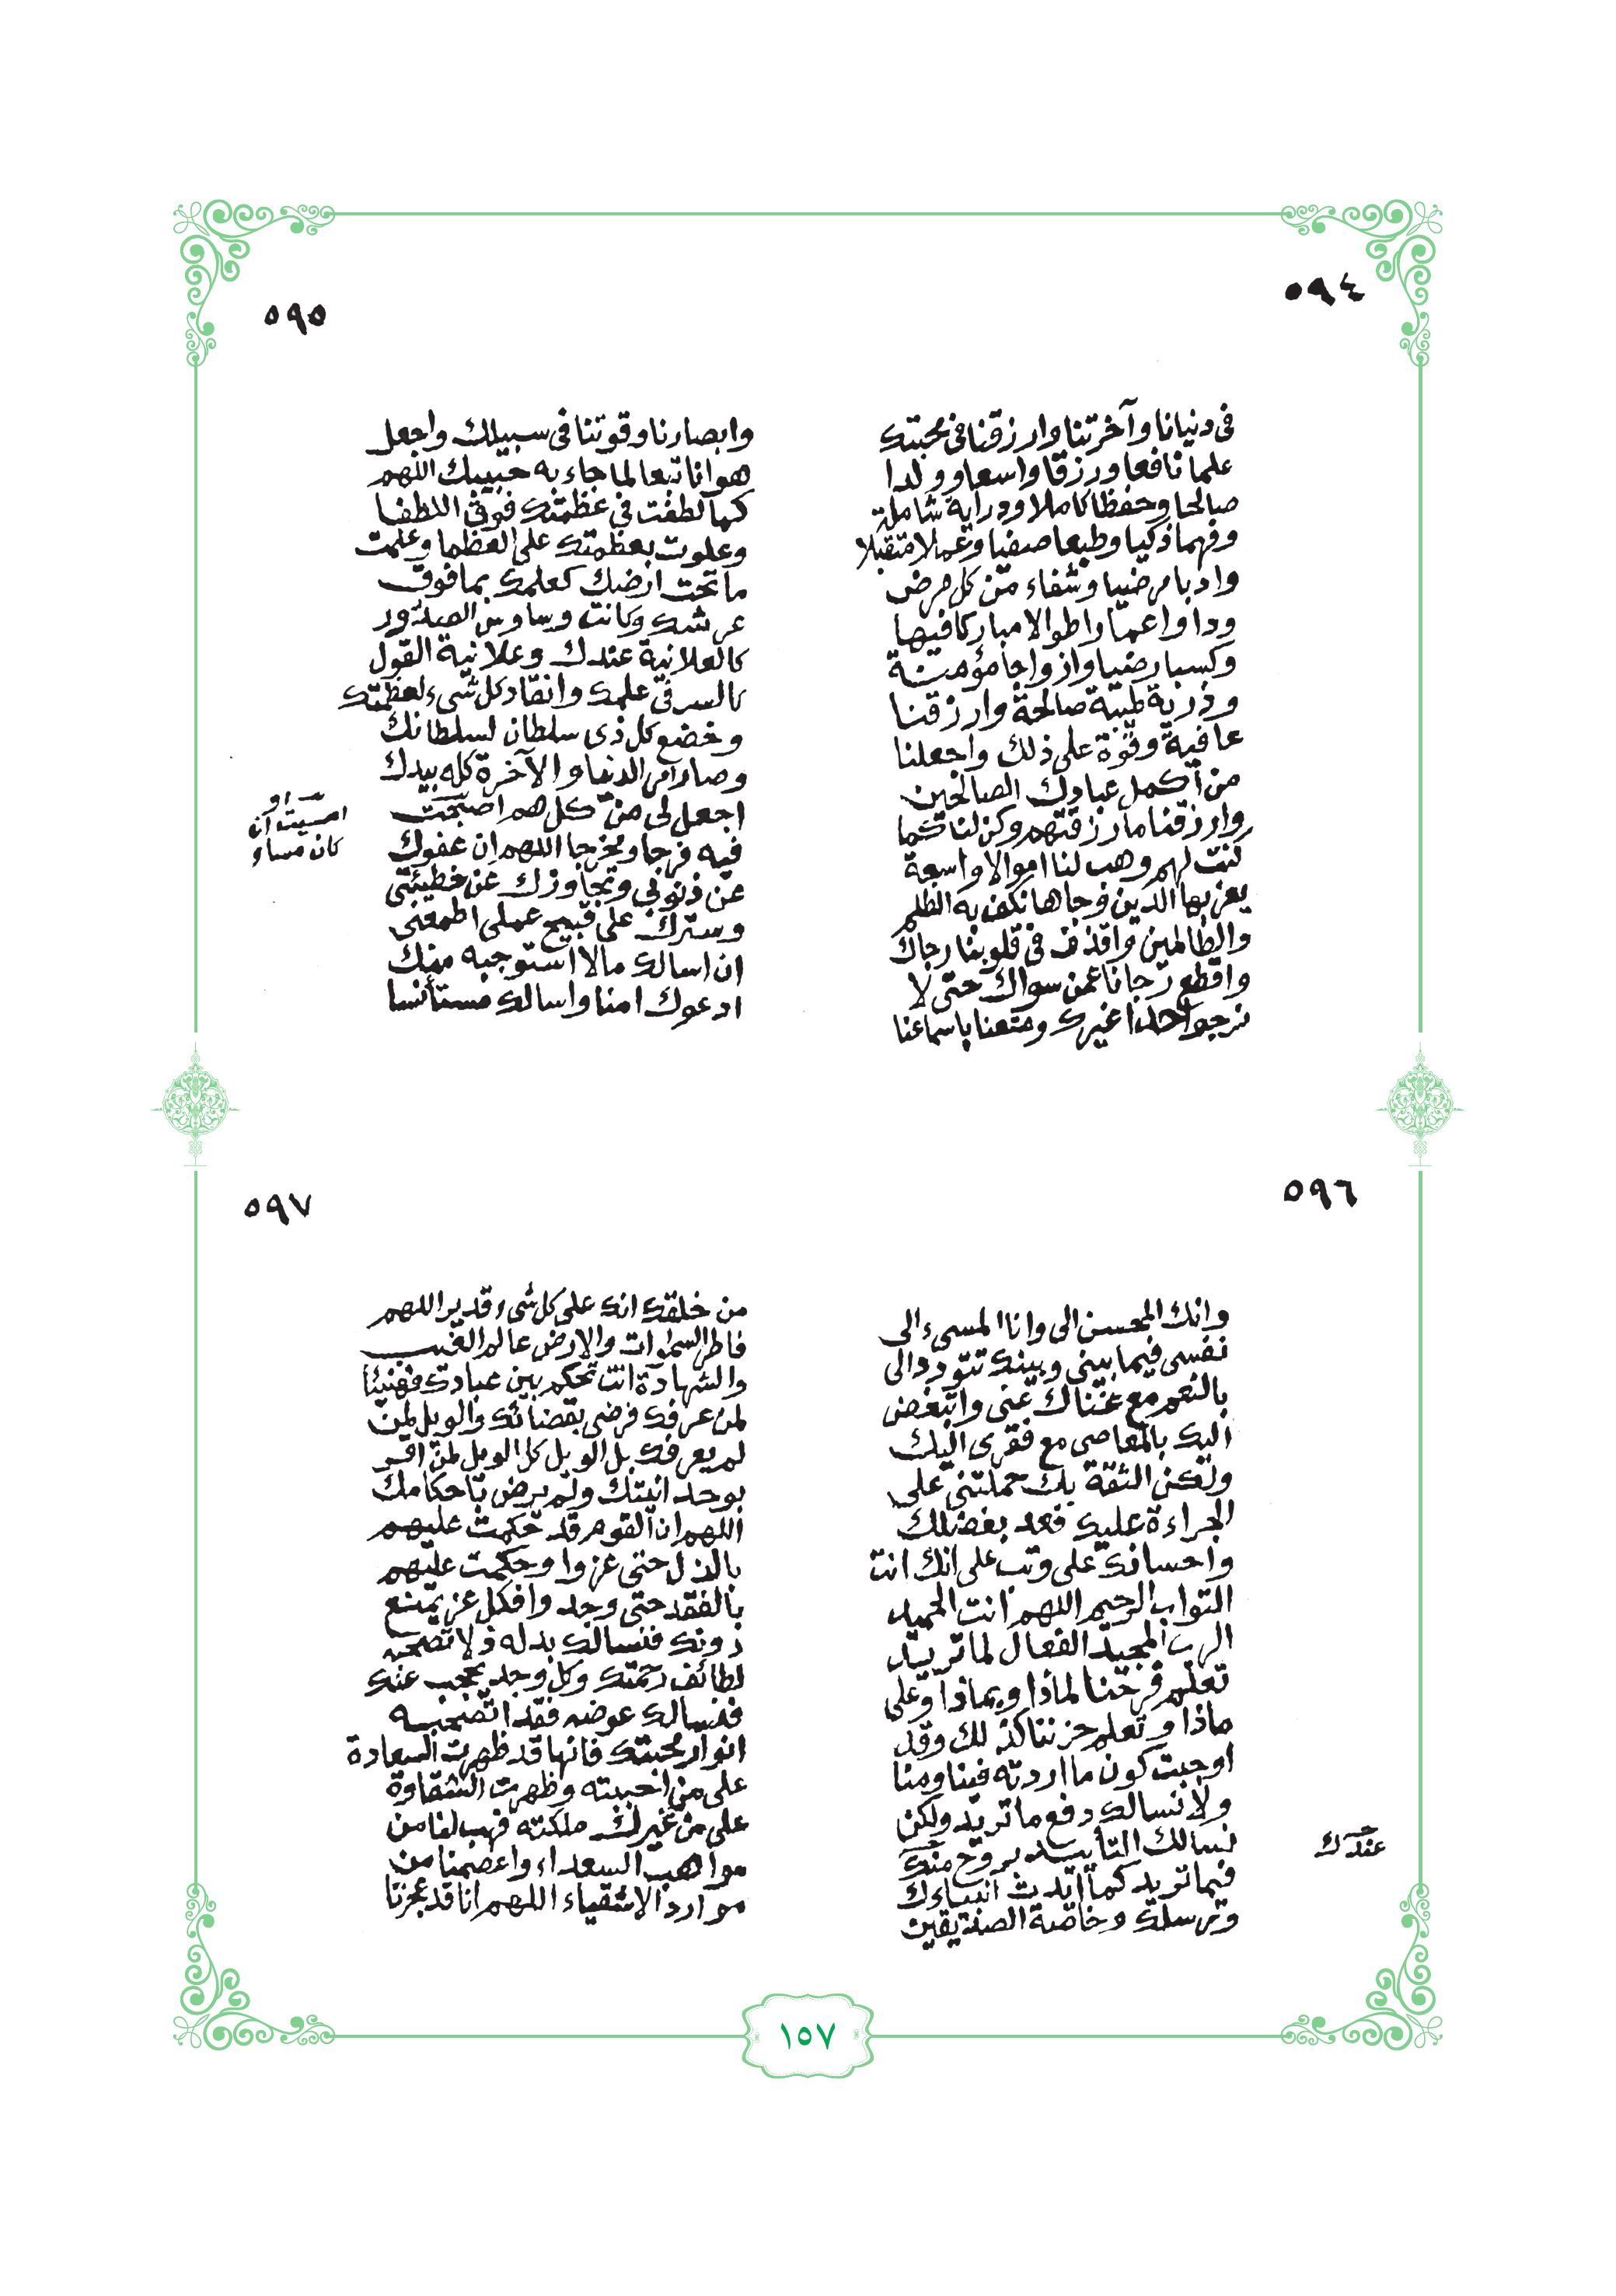 ٥٩٤
في دنيانا وآخرتنا وارزقنا في محبتك
علما نافعا ورزقا واسعا وولدا
صالحا وحفظا كاملا ودراية شاملة
وفهما ذكيا وطبعا صفيا وعملا متقبلا
وادبا مرضيا وشفاء من كل مرض
ودا واعمارا طوالا مباركا فيها
وكسبا رضيا وازواجا مؤمنة
وذرية طيبة صالحة وارزقنا
عافية وقوة على ذلك واجعلنا
من أكمل عبادك الصالحين
وارزقنا ما رزقتهم وكن لنا كما
كنت لهم وهب لنا اموالا واسعة
يعز بها الدين وجاها نكف به الظلم
والظالمين واقذف في قلوبنا رجاك
واقطع رجانا عمن سواك حتى لا
نرجوا أحدا غيرك ومتعنا باسماعنا
٥٩٥
وابصارنا وقوتنا في سبيلك واجعل
هوانا تبعا لما جاء به حبيبك اللهم
كما لطفت في عظمتك فوق اللطفا
وعلوت بعظمتك على العظما وعلمت
ما تحت ارضك كعلمك بما فوق
عرشك وكانت وساوس الصدور
كالعلانية عندك وعلانية القول
كالسر في علمك وانقاد كل شىء لعظمتك
وخضع كل ذى سلطان لسلطانك
وصار امر الدنيا والآخرة كله بيدك
اجعل لى من كل هم اصبحت
فيه فرجا ومخرجا اللهم ان عفوك
عن ذنوبي وتجاوزك عن خطيئتي
وسترك على قبيح عملى اطمعنى
ان اسالك مالا استوجبه منك
ادعوك امنا واسالك مستأنسا
او
امسيت ان
كان مساء
٥٩٦
وانك المحسن الى وانا المسىء الى
نفسى فيما بينى وبينك تتودد الى
بالنعم مع غناك عنى واتبغض
اليك بالمعاصى مع فقرى اليك
ولكن الثقة بك حملتنى على
الجراءة عليك فعد بفضلك
واحسانك على وتب على انك انت
التواب الرحيم اللهم انت الحميد
الرب المجيد الفعال لما تريد
تعلم فرحنا لماذا وبماذا وعلى
ماذا وتعلم حزننا كذلك وقد
اوجبت كون ما اردته فينا ومنا
ولا نسالك دفع ما تريد ولكن
نسالك التأييد بروح منك
فيما تريد كما ايدت انبياءك
ورسلك وخاصة الصديقين
عندك
٥٩٧
من خلقك انك على كل شىء قدير اللهم
فاطر السموات والارض عالم الغيب
والشهادة انت تحكم بين عبادك فهنيئا
لمن عرفك فرضى بقضائك والويل لمن
لم يعرفك بل الويل كل الويل لمن اقر
بوحدانيتك ولم يرض باحكامك
اللهم ان القوم قد حكمت عليهم
بالذل حتى عزوا وحكمت عليهم
بالفقد حتى وجدوا فكل عز يمنع
دونك فنسالك بدله ذلا تصحبه
لطائف رحمتك وكل وجد يحجب عنك
فنسالك عوضه فقدا تصحبه
انوار محبتك فانها قد ظهرت السعادة
على من احببته وظهرت الشقاوة
على من غيرك ملكته فهب لنا من
مواهب السعداء واعصمنا من
موارد الاشقياء اللهم انا قد عجزنا
١٥٧